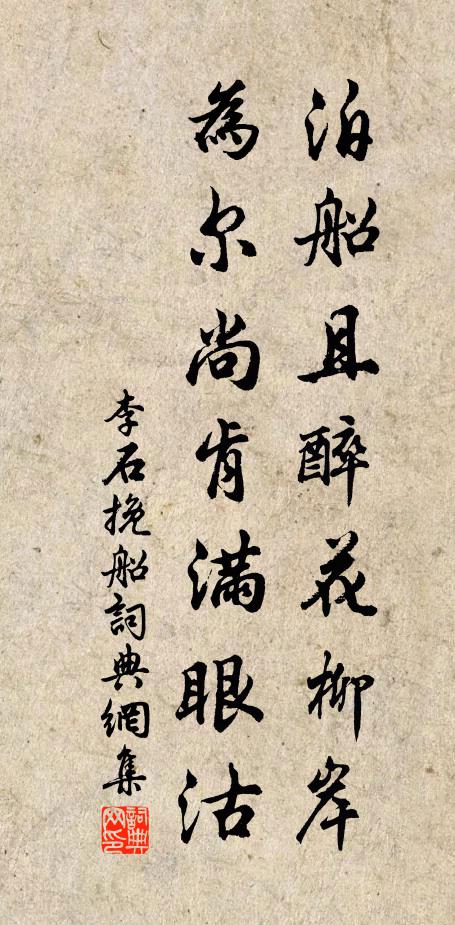 泊船且醉花柳岸
為尔尚肯满眼沽
李石挽船詞典網集
詞典
网印